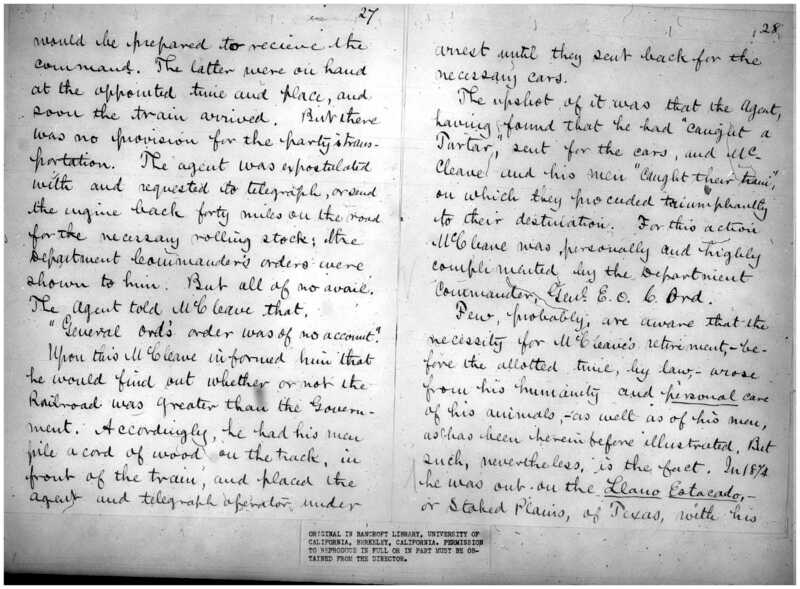 27
would be prepared to recieve the
command. The latter were on hand
at the appointed time and place, and
soon the train arrived. But there
was no provision for the party's trans-
portation. The agent was expostulated
with and requested to telegraph, or send
the engine back forty miles on the road
for the necessary rolling stock; the
Department Commander's orders were
shown to him. But all of no avail.
The Agent told McCleave that,
"General Ord's order was of no account".
Upon this McCleave informed him that
he would find out whether or not the
Railroad was greater than the Govern-
ment. Accordingly, he had his men
pile a cord of wood on the track, in
front of the train, and placed the
agent and telegraph operator under
28
arrest until they sent back for the
necessary cars.
The upshot of it was that the Agent,
having found that he had "caught a
Tartar," sent for the cars, and Mc-
Cleave and his men "caught their train",
on which they proceded triumphantly
to their destination. For this action
McCleave was personally and highly
complimented by the Department
Commander, Genl. E. O. C. Ord.
Few, probably, are aware that the
necessity for McCleave's retirement, - be-
fore the allotted time, by law, - arose
from his humanity and personal care
of his animals, - as well as of his men,
as has been hereinbefore illustrated. But
such, nevertheless, is the fact. In 1874
he was out on the Llano Estacado, -
or Staked Plains, of Texas, with his
ORIGINAL IN BANCROFT LIBRARY, UNIVERSITY OF
CALIFORNIA, BERKELEY, CALIFORNIA. PERMISSION
TO REPRODUCE IN FULL OR IN PART MUST BE OB-
TAINED FROM THE DIRECTOR.